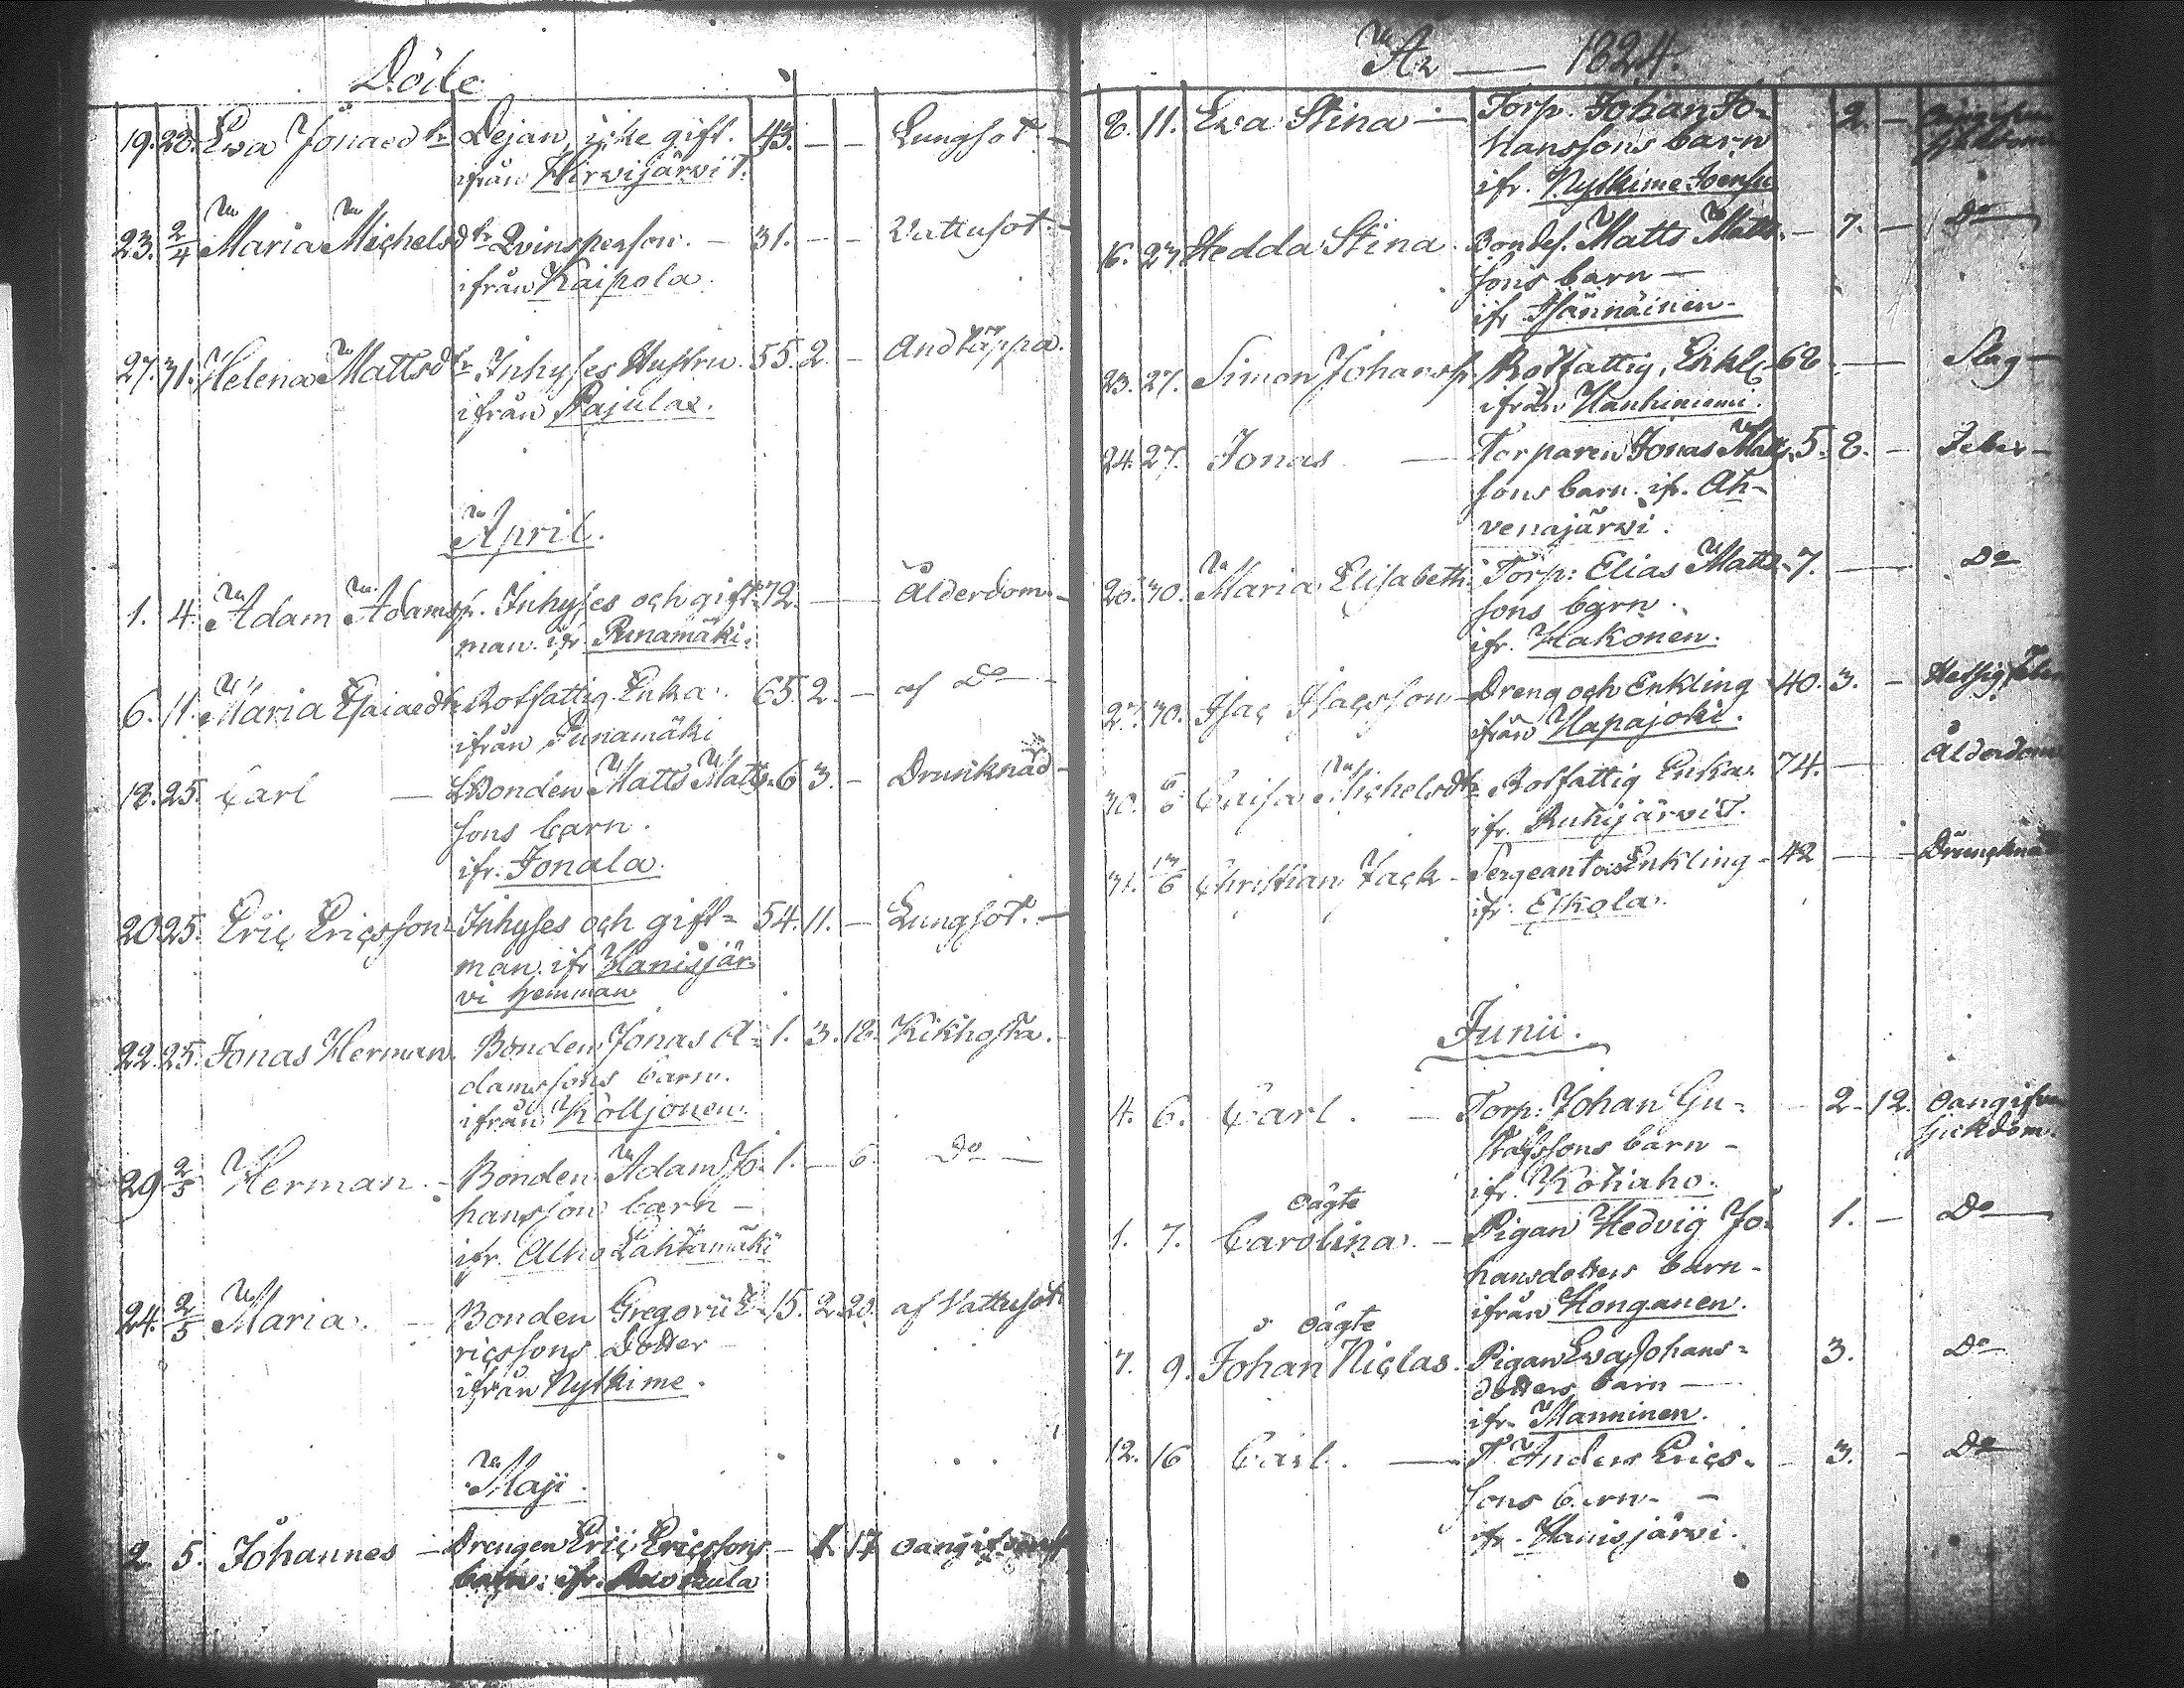 Döde
19. 28. Ewa Jönaedtr Dejan, icke gift. 43. — — Lungsot. —
ifrån Hirvijärvi T.
23. 2/4 Maria Michelsdtr Qvinsperson. — 31. — — Vattusot. —
ifrån Kaipola.
27. 31. Helena Mattsdtr Inhyses Hustru. 55. 2. — Andtäppa.
ifrån Pajulax.
April.
1. 4. Adam Adamss. Inhyses och gift 72. — — Ålderdom. —
man. ifr.
6. 11. Maria Esaiaedtr Rotfattig Enka. 65. 2. — af Do —
ifrån Punamäki
18. 25. Carl — Bonden Matts Matts- 6. 3. — Drunknad —
sons barn.
ifr. Jonala.
20. 25. Eric Ericsson Inhyses och gift= 54. 11. — Lungsot. —
man. ifr. Hanisjär-
vi hemman
22. 25. Jonas Herman. Bonden Jonas A= 1. 3. 18. Kikhosta. —
damssons barn.
ifrån Kolljonen.
29 2/5 Herman. — Bonden Adam Jo- 1. — 6 Do —
hansson barn —
ifr. Alho Lahtamäki
24. 2/5 Maria. — Bonden Gregorii E- 15. 2. 20. af Vattusot
ricssons Dotter —
ifrån Nyskime.
Maji.
2. 5. Johannes — Drengen Eric Ericssons — 1. 17
barn. ifr.
Ao — 1824.
8. 11. Ewa Stina — Torp. Johan Jo= 2. —
hanssons barn
ifr. Nyskime Joensu
16. 23. Hedda Stina. Bondes. Matts Matts- — 7. — Do —
sons barn —
ifr Hännäinen.
23. 27. Simon Johanss. Rotfattig, Enkl. 68 — — Slag —
ifrån Hankiniemi.
24. 27. Jonas — Torparen Jonas Matts- 5. 8. — Feber —
sons barn. ifr. Ah-
venajärvi.
26. 30. Maria Elisabeth. Torp: Elias Matts- 7. — Do
sons barn.
ifr. Hakonen.
27. 30. Isac Isacsson — Dreng och Enkling 40. 3. — Hetsig feber
ifrån Hapajoki.
30. 6/6 Caisa Michelsdtr Rotfattig Enka. 74. — Ålderdom
ifr. Ruhijärvi T.
31. 13/6 Christian Jack — Sergeant och Enkling — 42 — — Drunknad
ifr: Eskola.
Junii.
4. 6. Carl. — Torp: Johan Gu= — 2. 12. Oangifven
stafssons barn — sjukdom.
ifr. Kotiaho.
oägte
1. 7. Carolina. — Pigan Hedvig Jo- 1. — Do —
hansdotters barn —
ifrån Honganen.
oägte
7. 9. Johan Niclas. Pigan Ewa Johans= 3. Do
dotters barn —
ifr. Manninen.
12. 16 Carl. — T. Anders Erics- — 3. — Do
sons barn. —
ifr. Hanisjärvi.